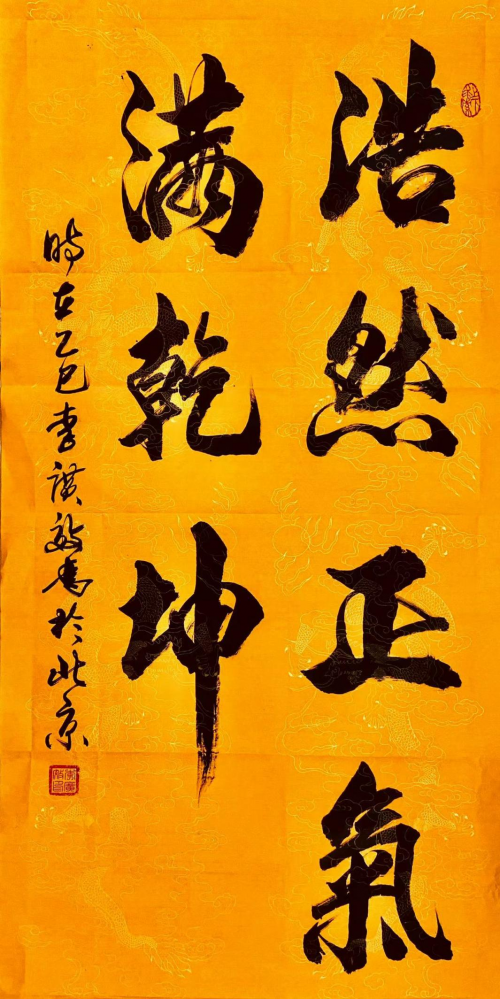 浩然正氣
滿乾坤
時在乙巳李广敏書於北京